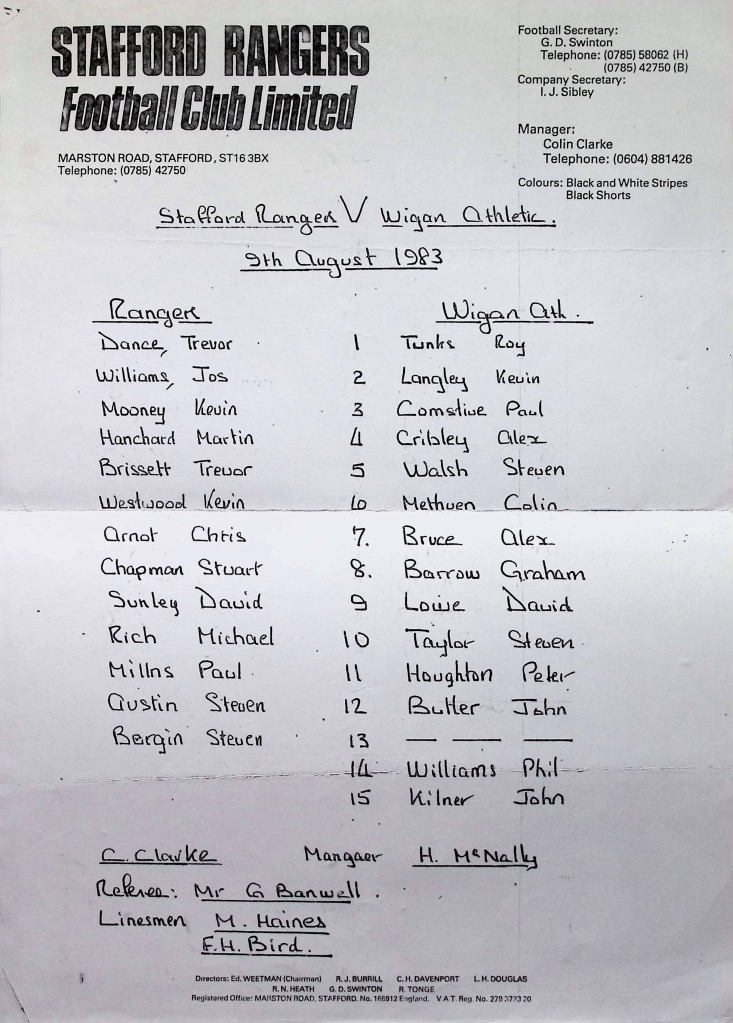 STAFFORD RANGERS
Football Club Limited
MARSTON ROAD, STAFFORD, ST16 3BX
Telephone: (0785) 42750
Football Secretary:
G. D. Swinton
Telephone: (0785) 58062 (H)
(0785) 42750 (B)
Company Secretary:
I. J. Sibley
Manager:
Colin Clarke
Telephone: (0604) 881426
Colours: Black and White Stripes
Black Shorts
Stafford Rangers V Wigan Athletic.
9th August 1983
Rangers Wigan Ath.
Dance, Trevor 1 Tunks Roy
Williams, Jos 2 Langley Kevin
Mooney Kevin 3 Comstive Paul
Hanchard Martin 4 Cribley Alex
Brissett Trevor 5 Walsh Steven
Westwood Kevin 6 Methven Colin
Arnot Chris 7. Bruce Alex
Chapman Stuart 8. Barrow Graham
Sunley David 9 Lowe David
Rich Michael 10 Taylor Steven
Millns Paul 11 Houghton Peter
Austin Steven 12 Butler John
Bergin Steven 13 — — —
14 Williams Phil
15 Kilner John
C. Clarke Mangaer H. McNally
Referee: Mr G Banwell.
Linesmen M. Haines
F.H. Bird.
Directors: Ed. WEETMAN (Chairman) R. J. BURRILL C. H. DAVENPORT L. H. DOUGLAS
R. N. HEATH G. D. SWINTON R. TONGE
Registered Office: MARSTON ROAD, STAFFORD. No. 166812 England. V A T Reg. No. 279 3723 20